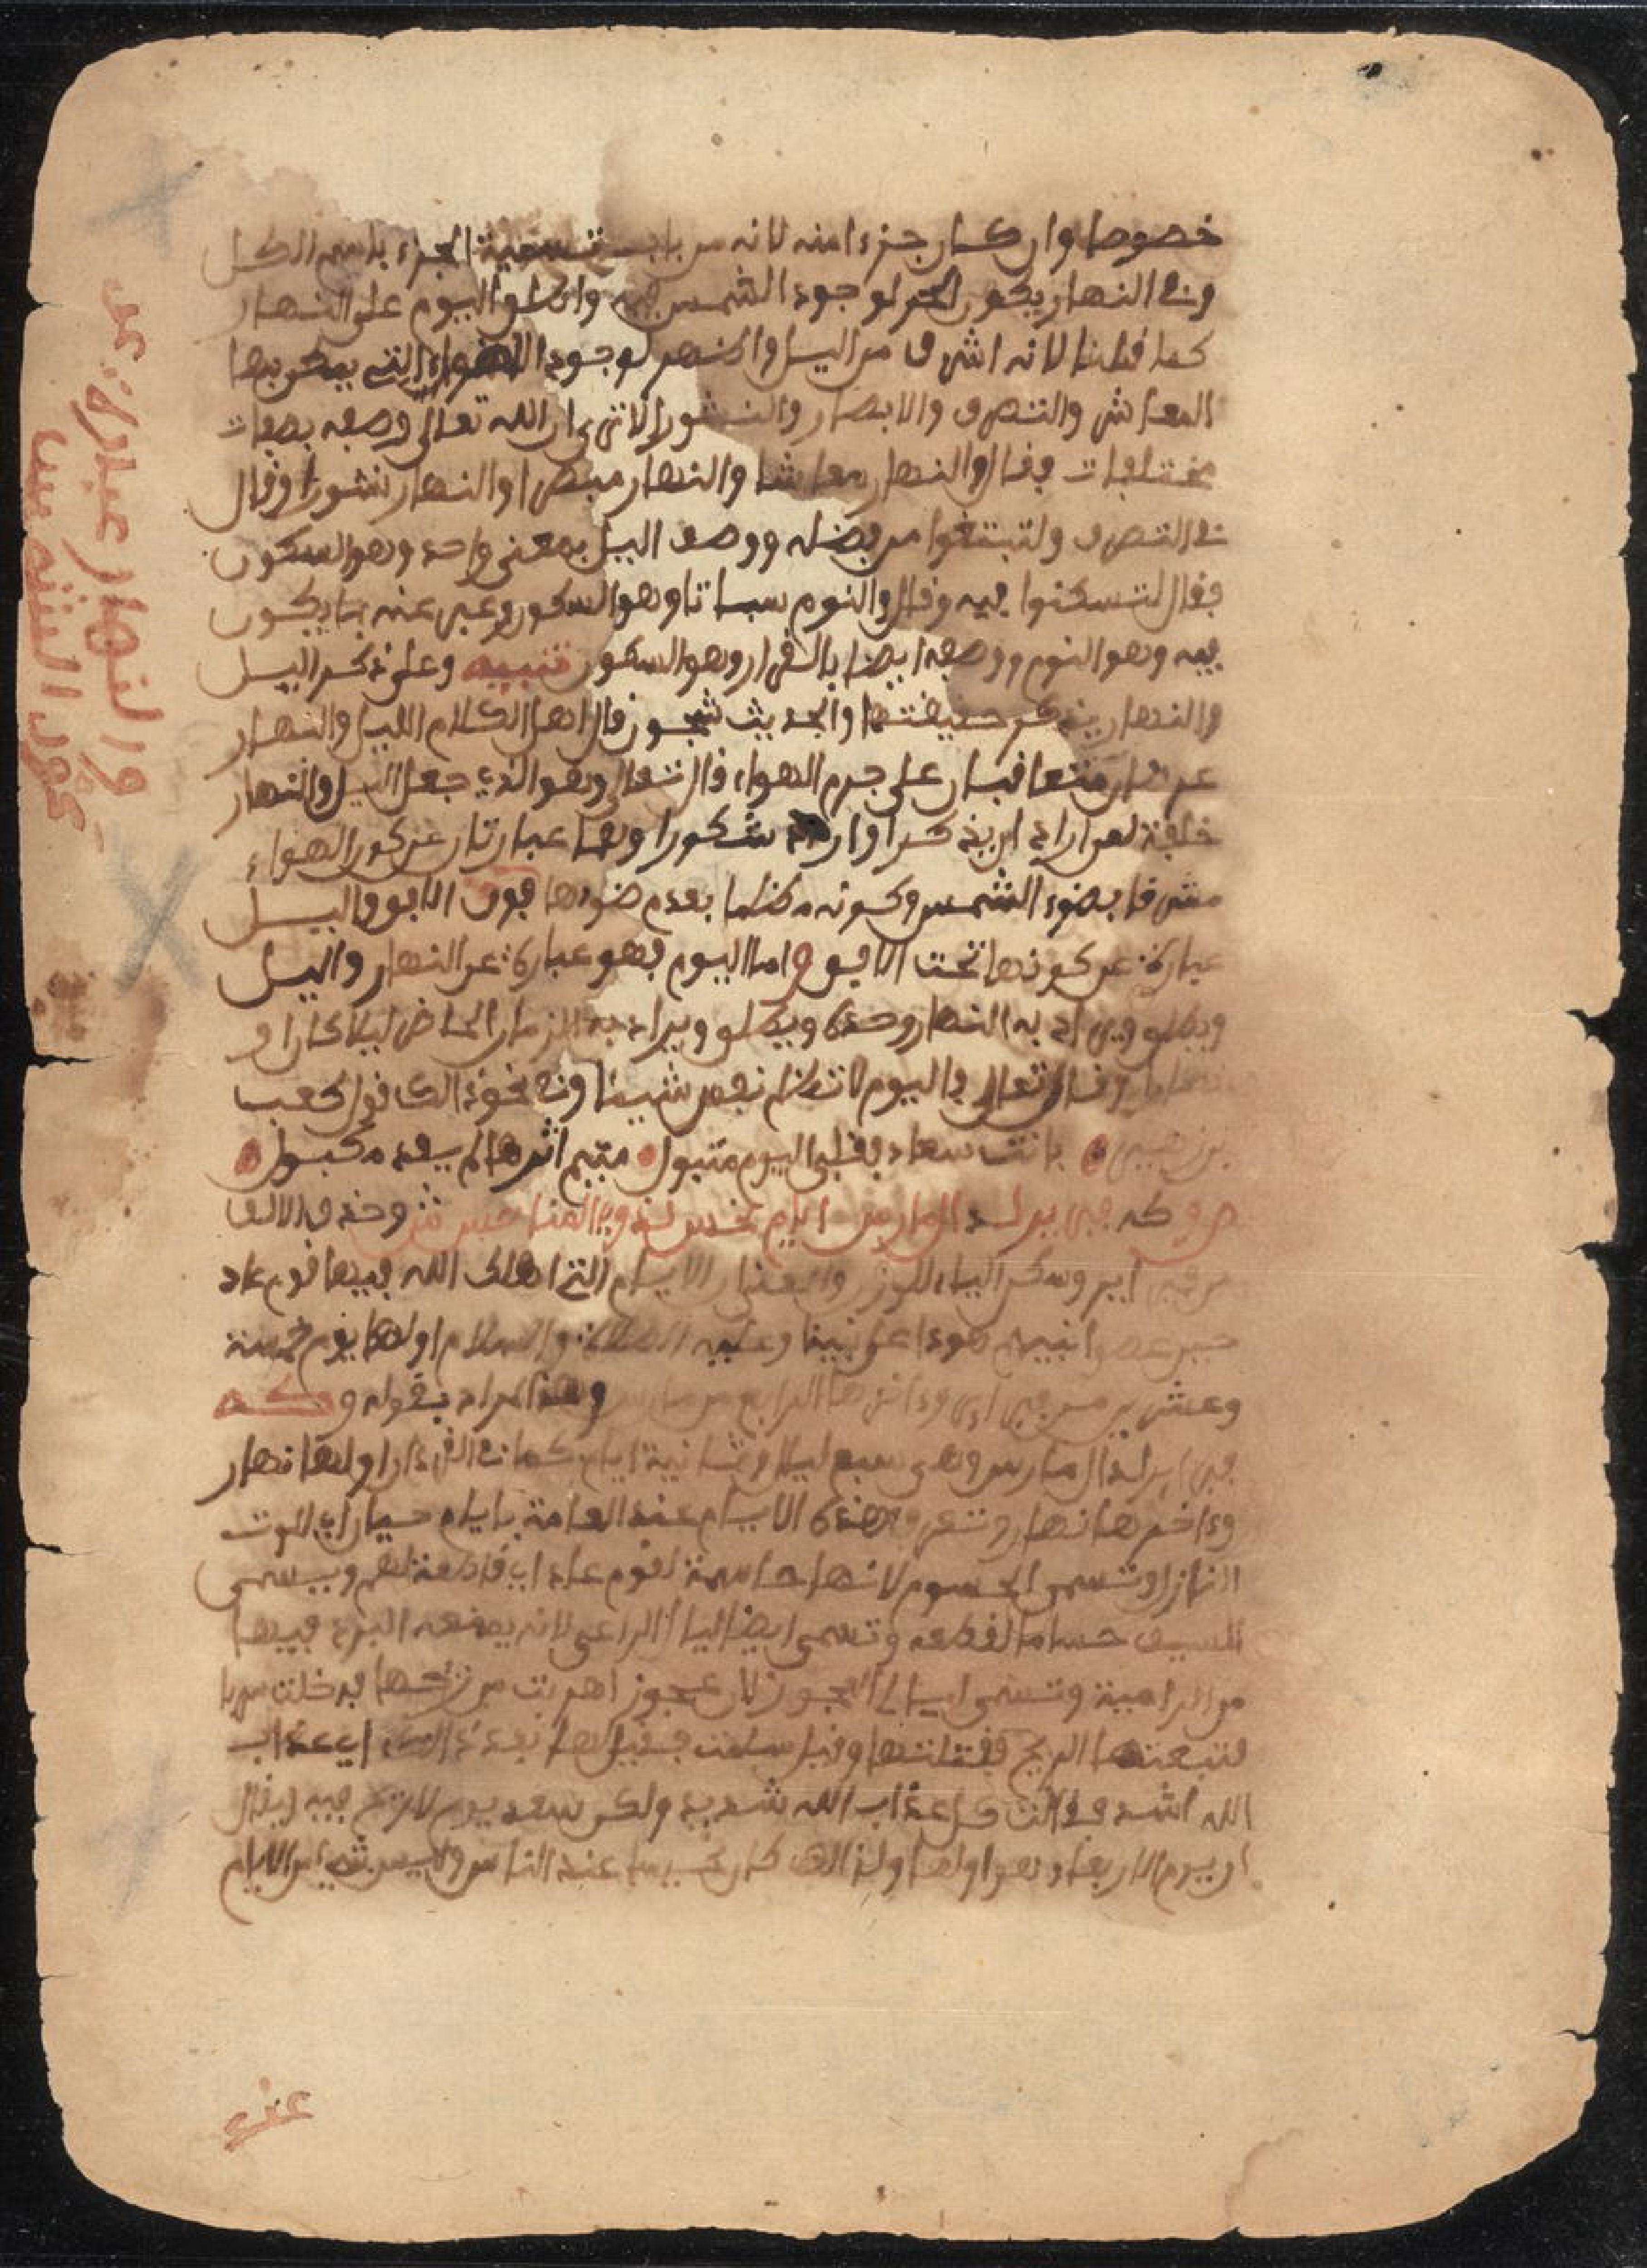 خصوصا وان كان جزءا منه لانه من باب تسمية الجزء باسم الكل
وفي النهار يكون الحر لوجود الشمس فيه واطلق اليوم على النهار
كما قلنا لانه اشرف من اليل واظهر لوجود الاضواء التي يمكن بها
المعاش والتصرف والابصار والنشور الا ترى ان الله تعالى وصفه بصفات
مختلفات فقال والنهار معاشا والنهار مبصرا والنهار نشورا وقال
في التصرف ولتبتغوا من فضله ووصف اليل بمعنى واحد وهو السكون
فقال لتسكنوا فيه وقال والنوم سباتا وهو السكون وعبر عنه بما يكون
فيه وهو النوم ووصفه ايضا بالقرار وهو السكون تنبيه وعلى ذكر اليل
والنهار يذكر حقيقتهما والحديث شجون قال اهل الكلام الليل والنهار
عرضان متعاقبان على جرم الهواء قال تعالى وهو الذي جعل اليل والنهار
خلفة لمن اراد ان يذكر او اراد شكورا وهما عبارتان عن كون الهواء
مشرقا بضوء الشمس وكونه مظلما بعدم ضوءها فوق الافق واليل
عبارة عن كونها تحت الافق واما اليوم فهو عبارة عن النهار واليل
ويطلق ويراد به النهار وحده ويطلق ويراد به الزمان الحاضر ليلا كان او
نهارا وقال تعالى فاليوم لا تظلم نفس شيئا وفي نحو ذلك قول كعب
بن زهير بانت سعاد فقلبي اليوم متبول متيم اثرها لم يفد مكبول
وكه فبرير لد المارس ايام نحس لذوي المناحس وحذف الالف
من فبراير وسكن الياء للوزن والمعنى ان الايام التي اهلك الله فيها قوم عاد
حين عصوا نبيهم هودا على نبينا وعليه الصلاة والسلام اولها يوم خمسة
وعشرين من فبراير وءاخرها الرابع من مارس وهذا المراد بقوله وكه
فبراير لد المارس وهي سبع ليال وثمانية ايام كما في القرءان اولها نهار
وءاخرها نهار وتعرف هذه الايام عند العامة بايام حيان
وتسمى الحسوم لانها حاسمة لقوم عاد اي قاطعة لهم ويسمى
السيف حساما لقطعه وتسمى ايضا ليالي الراعي لانه يضعه البرد فيها
وتسمى ليالي العجوز لان عجوز اهربت من ريحها فدخلت سربا
فتبعتها الريح فقتلتها وقيل سلمت فقيل لها بعد ذلك اي عذاب
الله اشد قالت كل عذاب الله شديد ولكن سعد يوم لا ريح فيه ويقال
ان يوم الاربعاء هو اولها ولذلك كان عند الناس وليس شيء من الايام
والنهار عبارة عن
كون الشمس
عند